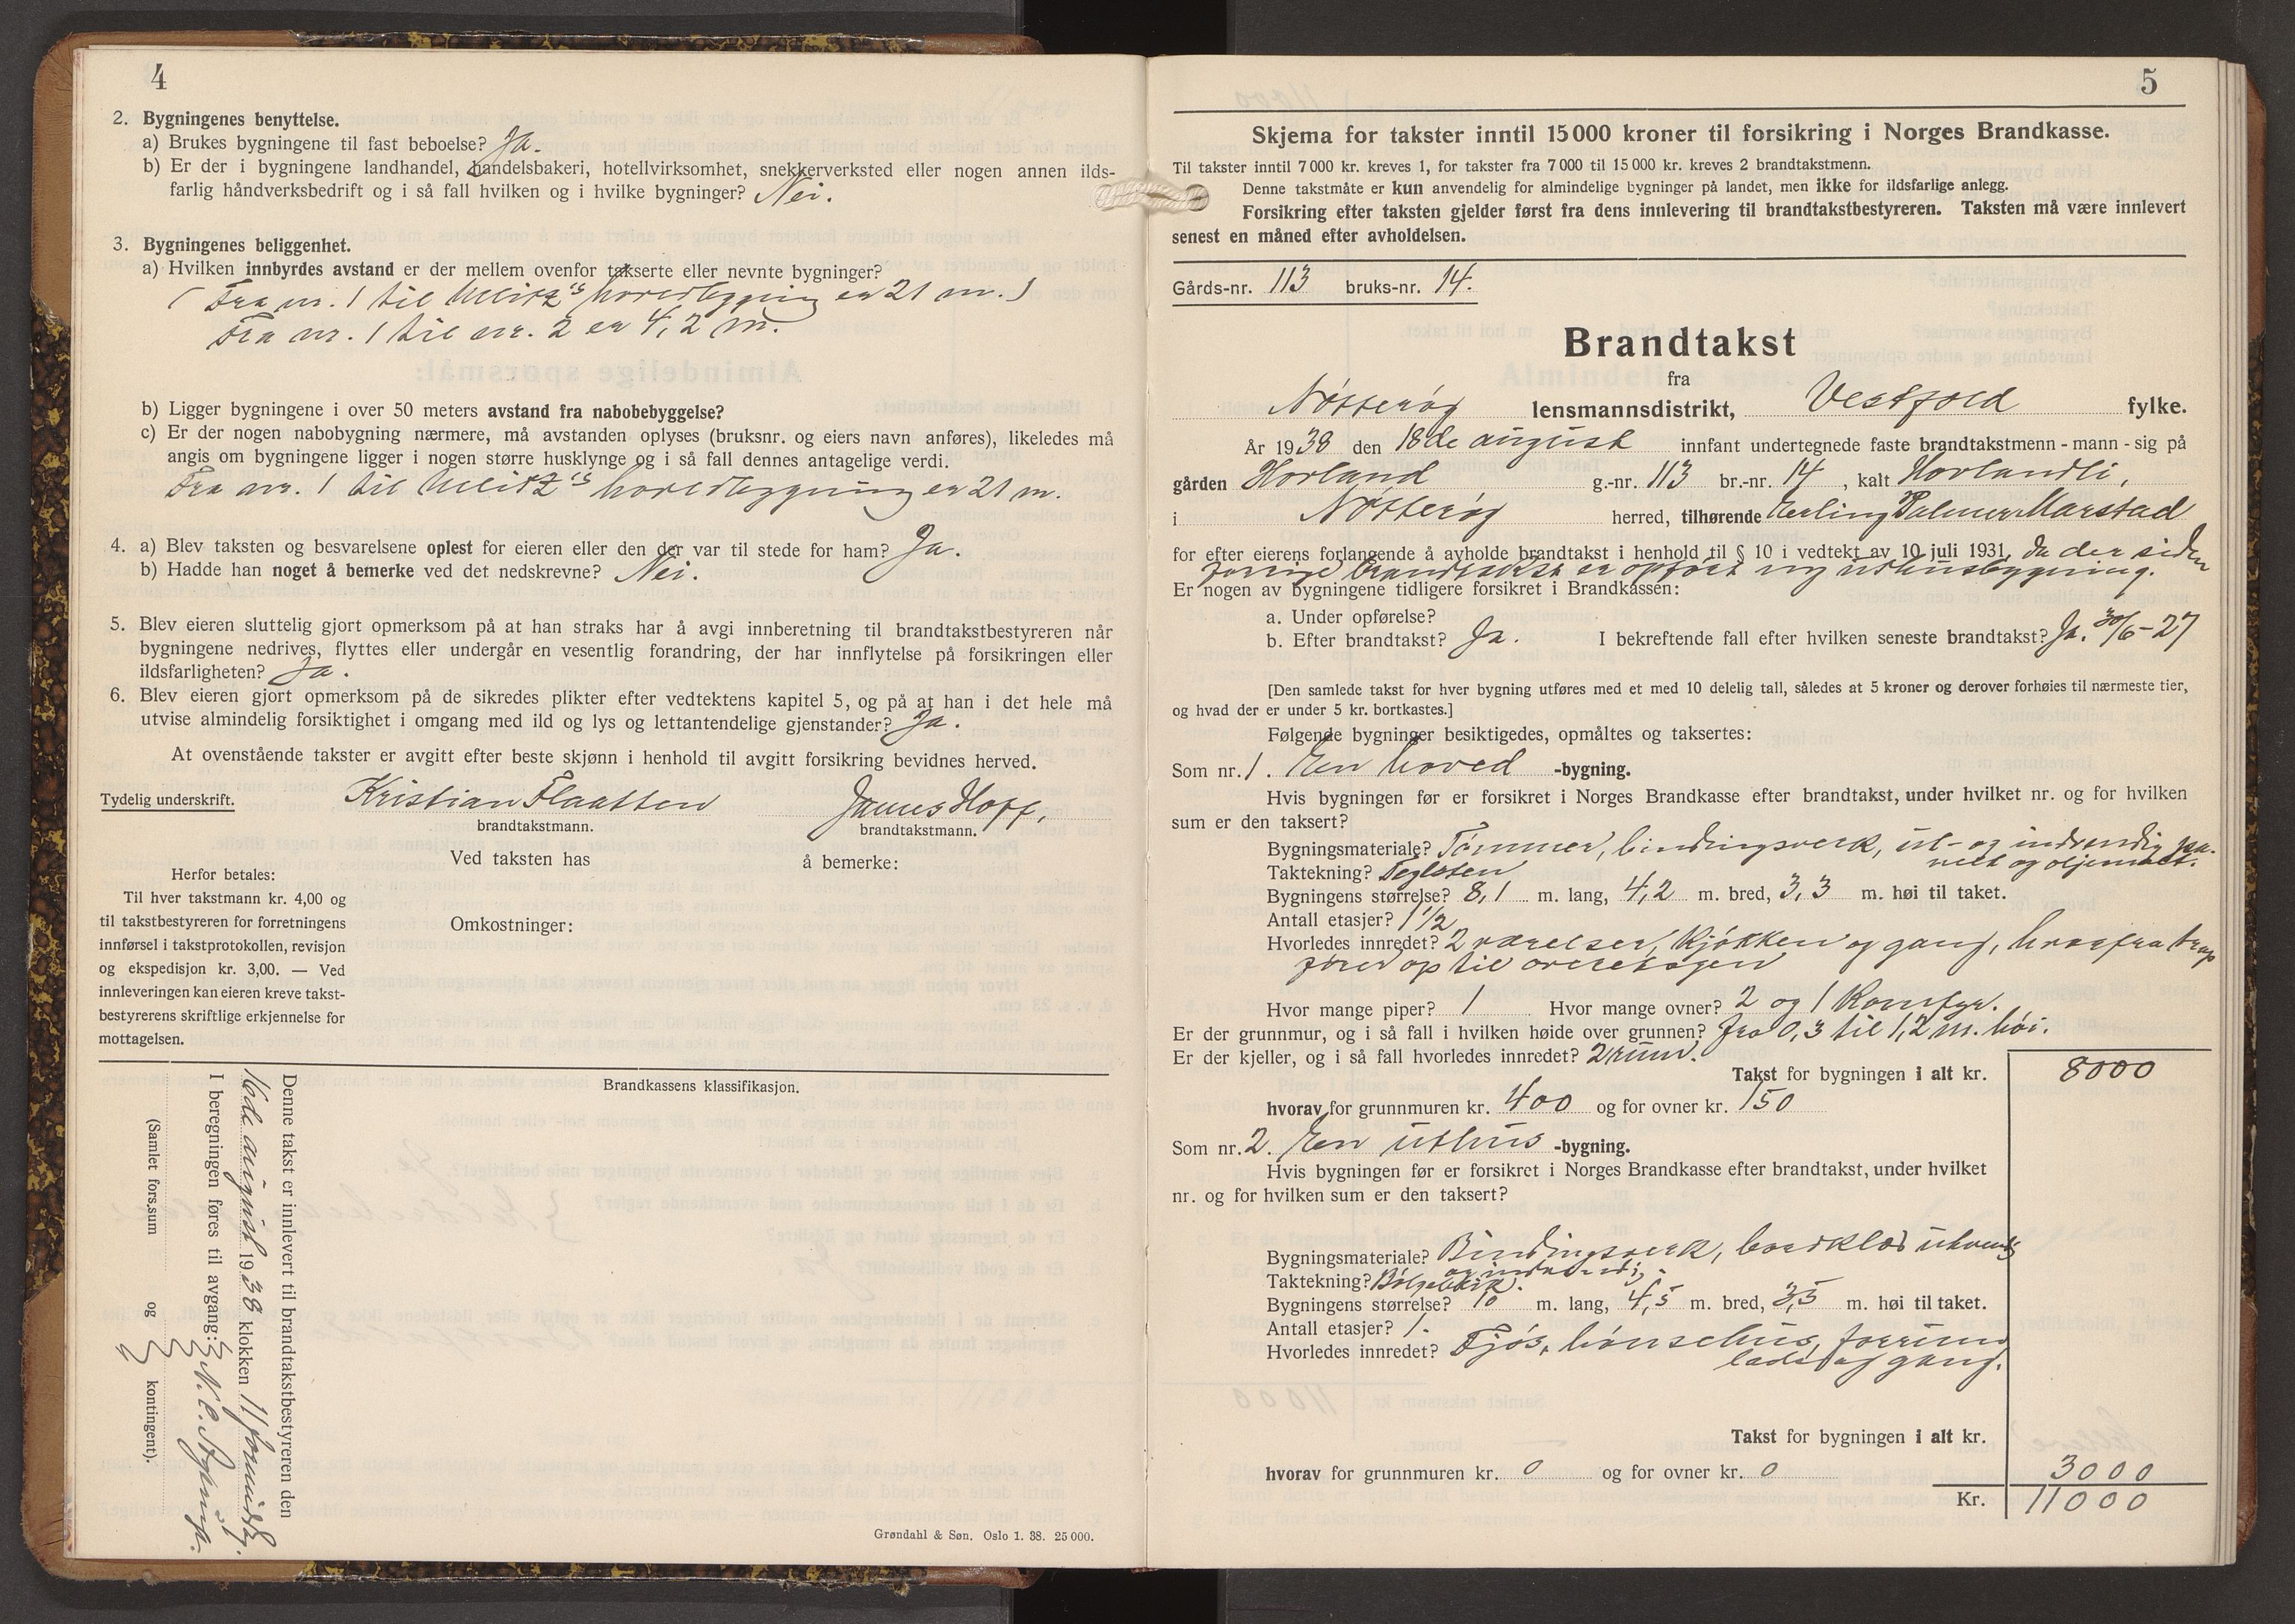 4
2. Bygningenes benyttelse.
a) Brukes bygningene til fast beboelse? Ja.
b) Er der i bygningene landhandel, handelsbakeri, hotellvirksomhet, snekkerverksted eller nogen annen ilds-
farlig håndverksbedrift og i så fall hvilken og i hvilke bygninger? Nei.
3. Bygningenes beliggenhet.
a) Hvilken innbyrdes avstand er der mellem ovenfor takserte eller nevnte bygninger?
( Fra nr. 1 til hovedbygning er 21 m. )
Fra nr. 1 til nr. 2 er 4,2 m.
b) Ligger bygningene i over 50 meters avstand fra nabobebyggelse?
c) Er der nogen nabobygning nærmere, må avstanden oplyses (bruksnr. og eiers navn anføres), likeledes må
angis om bygningene ligger i nogen større husklynge og i så fall dennes antagelige verdi.
Fra nr. 1 til hovedbygning er 21 m.
4. a) Blev taksten og besvarelsene oplest for eieren eller den der var til stede for ham? Ja.
b) Hadde han noget å bemerke ved det nedskrevne? Nei.
5. Blev eieren sluttelig gjort opmerksom på at han straks har å avgi innberetning til brandtakstbestyreren når
bygningene nedrives, flyttes eller undergår en vesentlig forandring, der har innflytelse på forsikringen eller
ildsfarligheten? Ja.
6. Blev eieren gjort opmerksom på de sikredes plikter efter vedtektens kapitel 5, og på at han i det hele må
utvise almindelig forsiktighet i omgang med ild og lys og lettantendelige gjenstander? Ja.
At ovenstående takster er avgitt efter beste skjønn i henhold til avgitt forsikring bevidnes herved.
Tydelig underskrift. Kristian Flaatten James Hoff,
brandtakstmann. brandtakstmann.
Ved taksten has å bemerke:
Herfor betales:
Til hver takstmann kr. 4,00 og
til takstbestyreren for forretningens
innførsel i takstprotokollen, revisjon
og ekspedisjon kr. 3,00. — Ved
innleveringen kan eieren kreve takst-
bestyrerens skriftlige erkjennelse for
mottagelsen.
Omkostninger:
Brandkassens klassifikasjon.
Denne takst er innlevert til brandtakstbestyreren den
august 1938 klokken 11
I beregningen føres til avgang:
(Samlet fors.sum og kontingent).
Grøndahl & Søn. Oslo 1. 38. 25 000.
5
Skjema for takster inntil 15 000 kroner til forsikring i Norges Brandkasse.
Til takster inntil 7 000 kr. kreves 1, for takster fra 7 000 til 15 000 kr. kreves 2 brandtakstmenn.
Denne takstmåte er kun anvendelig for almindelige bygninger på landet, men ikke for ildsfarlige anlegg.
Forsikring efter taksten gjelder først fra dens innlevering til brandtakstbestyreren. Taksten må være innlevert
senest en måned efter avholdelsen.
Gårds-nr. 113 bruks-nr. 14.
Brandtakst
fra
Nøtterøy lensmannsdistrikt, Vestfold fylke.
År 1938 den 18de august innfant undertegnede faste brandtakstmenn - mann - sig på
gården Hovland g.-nr. 113 br.-nr. 14, kalt Hovlandli,
i Nøtterøy herred, tilhørende Erling Palmer Marstad
for efter eierens forlangende å avholde brandtakst i henhold til § 10 i vedtekt av 10 juli 1931, da der siden
forrige brandtakst er opført ny uthusbygning.
Er nogen av bygningene tidligere forsikret i Brandkassen:
a. Under opførelse?
b. Efter brandtakst? Ja. I bekreftende fall efter hvilken seneste brandtakst? Ja. 30/6-27
[Den samlede takst for hver bygning utføres med et med 10 delelig tall, således at 5 kroner og derover forhøies til nærmeste tier,
og hvad der er under 5 kr. bortkastes.]
Følgende bygninger besiktigedes, opmåltes og taksertes:
Som nr. 1. En hoved -bygning.
Hvis bygningen før er forsikret i Norges Brandkasse efter brandtakst, under hvilket nr. og for hvilken
sum er den taksert?
Bygningsmateriale? Tømmer, bindingsverk, ut- og indvendig pa-
nelt og oljemalt.
Taktekning? Teglsten
Bygningens størrelse? 8,1 m. lang, 4,2 m. bred, 3,3 m. høi til taket.
Antall etasjer? 1 1/2
Hvorledes innredet? 2 værelser, kjøkken og gang, hvorfra trap
fører op til overetagen
Hvor mange piper? 1 Hvor mange ovner? 2 og 1 Komfyr.
Er der grunnmur, og i så fall i hvilken høide over grunnen? fra 0,3 til 1,2 m. høi.
Er der kjeller, og i så fall hvorledes innredet? 2 rum.
Takst for bygningen i alt kr. 8000
hvorav for grunnmuren kr. 400 og for ovner kr. 150
Som nr. 2. En uthus -bygning.
Hvis bygningen før er forsikret i Norges Brandkasse efter brandtakst, under hvilket
nr. og for hvilken sum er den taksert?
Bygningsmateriale? Bindingsverk, bordklæd utvendig
og indvendig.
Taktekning? Bølgeblikk.
Bygningens størrelse? 10 m. lang, 4,5 m. bred, 3,5 m. høi til taket.
Antall etasjer? 1.
Hvorledes innredet? Fjøs, hønsehus, forrum
lade og gang.
Takst for bygningen i alt kr.
hvorav for grunnmuren kr. 0 og for ovner kr. 0 3000
Kr. 11000